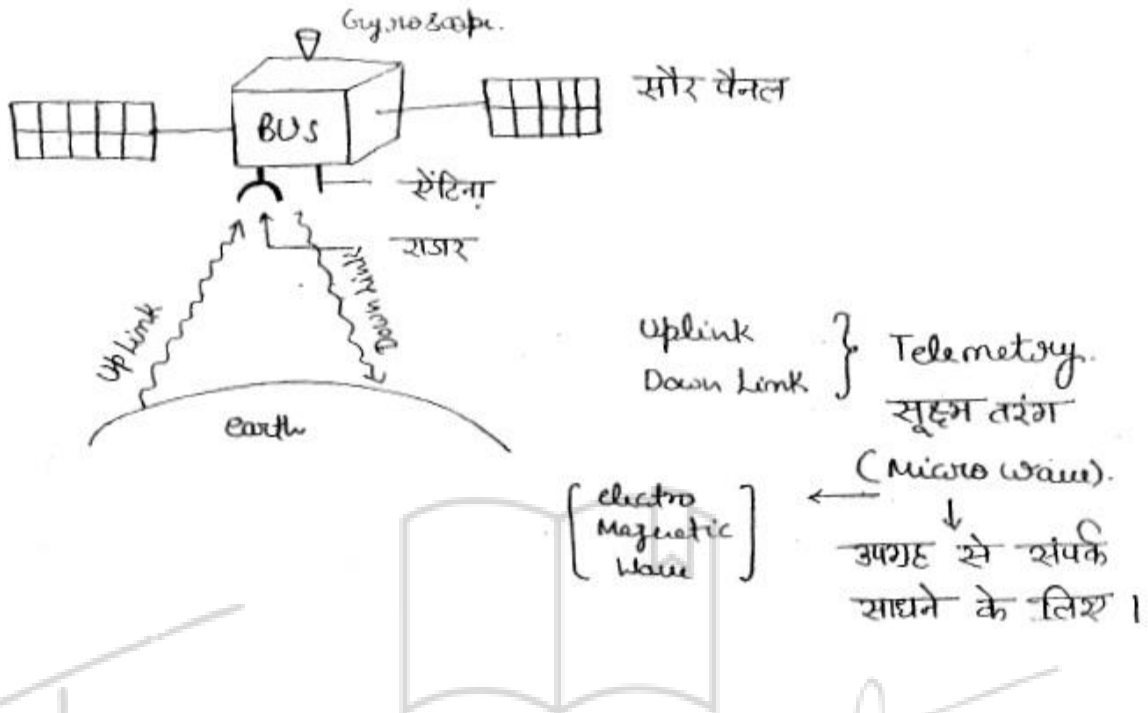 Gyroscope.
सौर पैनल
BUS
ऐंटिना
राडार
Up Link
Down Link
earth
Uplink
Down Link
Telemetry.
सूक्ष्म तरंग
(Micro wave).
electro
Magnetic
Wave
उपग्रह से संपर्क
साधने के लिए।